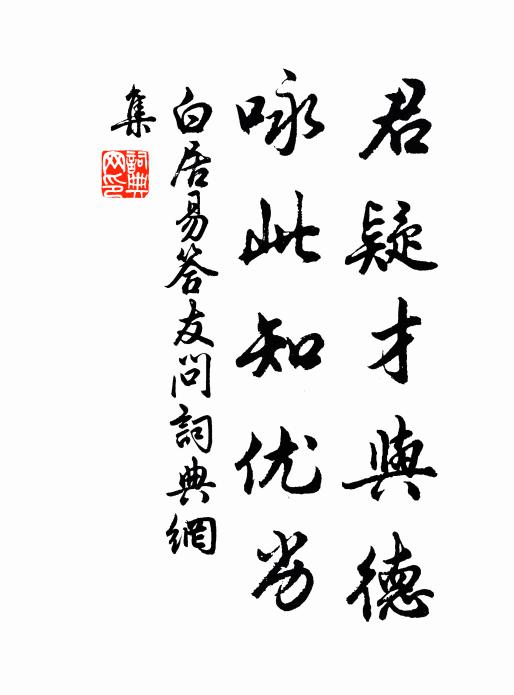 君疑才與德
咏此知优劣
白居易答友問詞典網
集
詞典網印